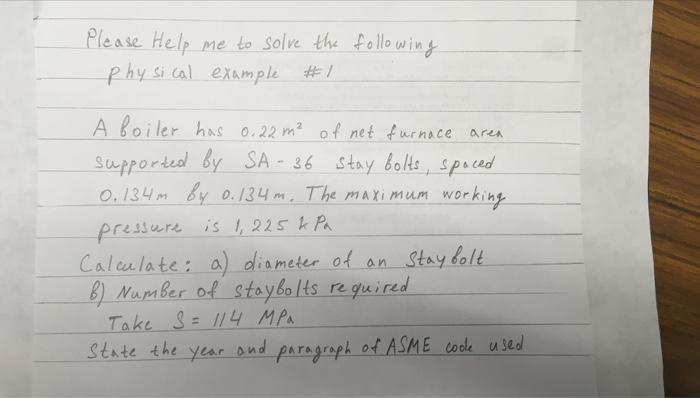 Please Help me to solve the following
physical example #1
A boiler has 0.22 m² of net furnace area
supported by SA-36 stay bolts, spaced
0.134m by 0.134m. The maximum working
pressure is 1,225 kPa
Calculate: a) diameter of an Staybolt
b) Number of staybolts required
Take S = 114 MPa
State the year and paragraph of ASME code used